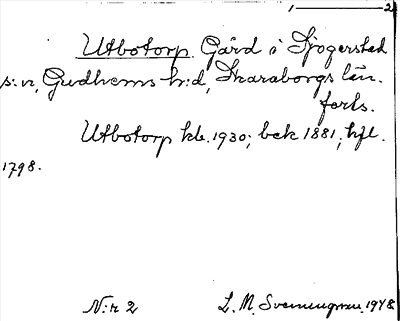 1 2
Utbotorp. Gård i Sjogerstad
s:n, Gudhems h:d, Skaraborgs län.
forts.
Utbotorp kb. 1930; bek 1881; hfl.
1798.
N:r 2 L. M. Svenungsson 1948